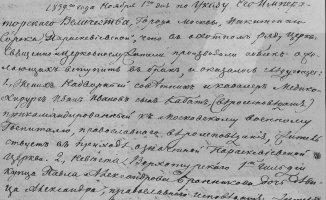 1899 года Ноября 1 дня по Указу Его Импера-
торскаго Величества, Города Москвы, Никитскаго
Сорока Параскевіевской, что въ Охотномъ ряду, Церк.
Священно-церковнослужители производили обыскъ о же-
лающихъ вступить въ бракъ, и оказалось слѣдующее:
1, Женихъ Надворный совѣтникъ и кавалеръ Медико-
Хирургъ Иванъ Ивановъ сынъ
прикомандированный къ Московскому военному
Госпиталю, православнаго вѣроисповѣданія, жительст-
ствуетъ въ приходѣ означенной Параскевіевской
Церкви. 2, Невѣста Верхотурскаго 1й гильдіи
Купца Павла Александрова дочь дѣви-
ца Александра, православнаго исповѣданія,